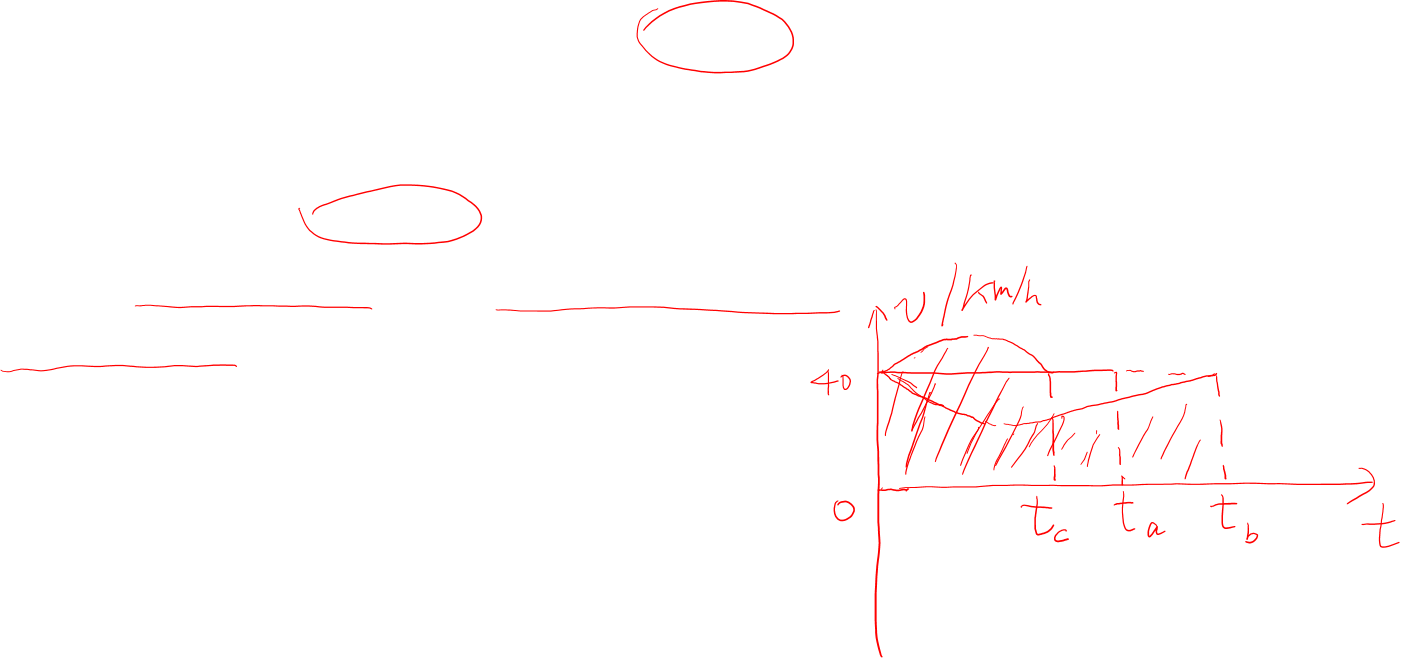 v/km/h
40
0
t_c t_a t_b t